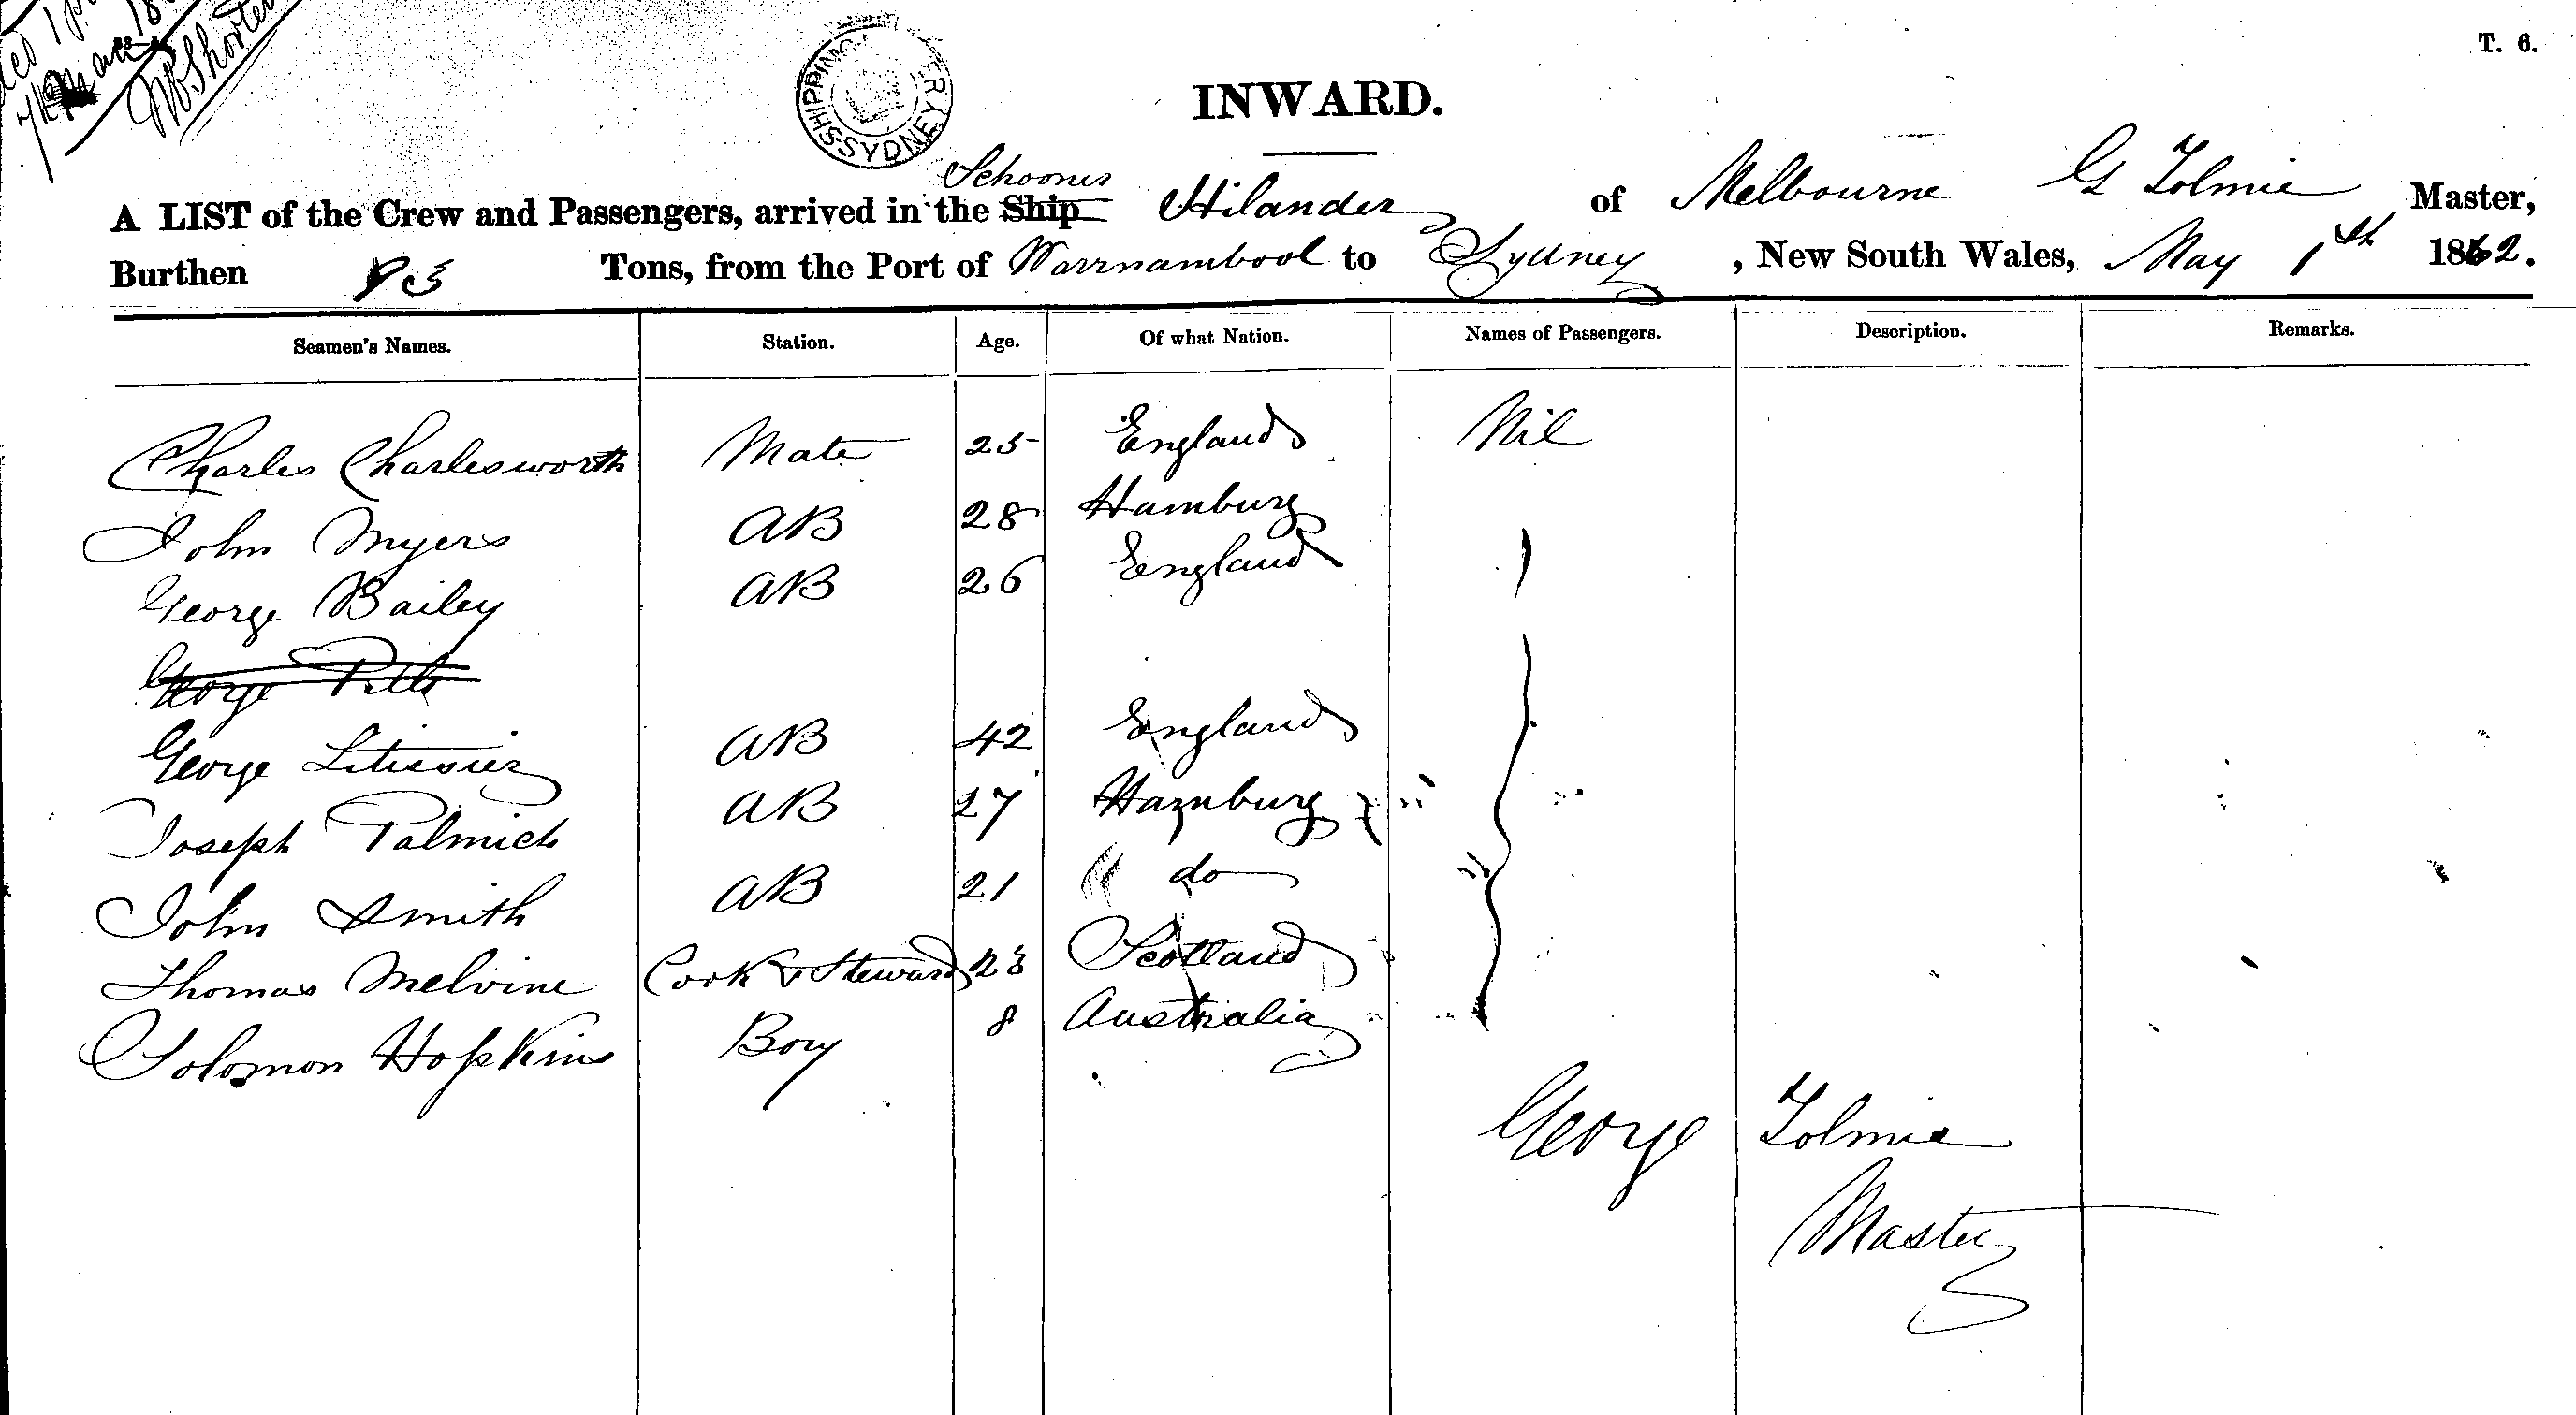 T. 6.
SHIPPING SYDNEY
INWARD.
Schooner
A LIST of the Crew and Passengers, arrived in the Ship Hilander of Melbourne G Tolmie Master,
Burthen Tons, from the Port of Warrnambool to Sydney, New South Wales, May 1th 1862.
Seamen's Names. Station. Age. Of what Nation. Names of Passengers. Description. Remarks.
Charles Charlesworth Mate 25 England Nil
John Myers AB 28 Hamburg
George Bailey AB 26 England
George
George AB 42 England
Joseph Palmich AB 27 Hamburg
John Smith AB 21 " do
Thomas Melvine Cook & Steward 23 Scotland
Solomon Hopkins Boy 8 Australia
George Tolmie
Master